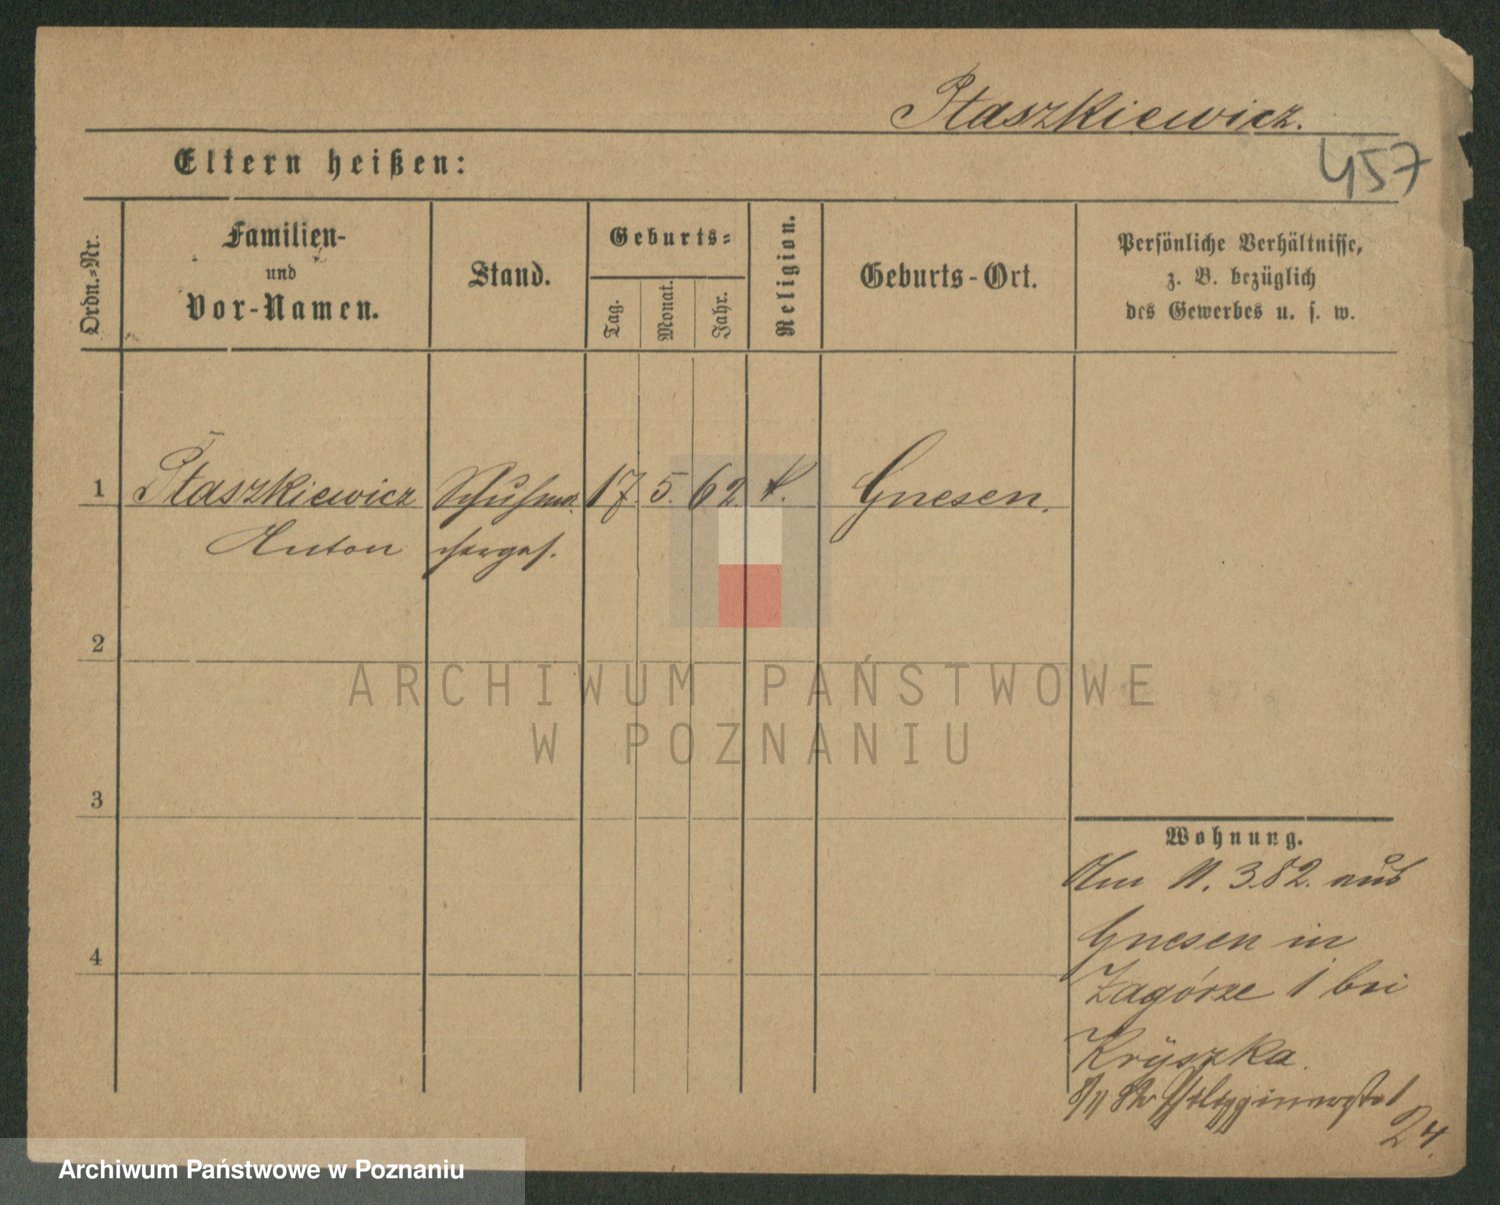 Ptaszkiewicz.
457
Eltern heißen:
Ordn.-Nr.
Familien-
und
Vor-Namen.
Stand.
Geburts-
Tag.
Monat.
Jahr.
Religion.
Geburts-Ort.
Persönliche Verhältnisse,
z. B. bezüglich
des Gewerbes u. s. w.
1 Ptaszkiewicz Schuhma- 17. 5. 62. k. Gnesen.
Anton cherges.
2
ARCHIWUM PAŃSTWOWE
W POZNANIU
3
Wohnung.
Am 11. 3.82. aus
Gnesen in
4
Zagórze 1 bei
Kryszka.
24.
Archiwum Państwowe w Poznaniu